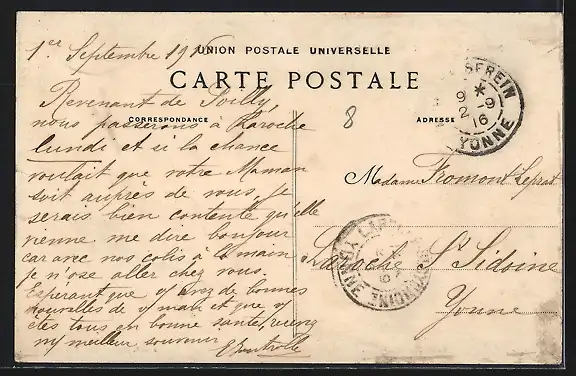 1er Septembre 1916
UNION POSTALE UNIVERSELLE
CARTE POSTALE
CORRESPONDANCE
ADRESSE
8
Revenant de
nous passerons à Laroche
lundi et si la chance
voulait que votre Maman
soit auprès de vous, je
serais bien contente qu'elle
vienne me dire bonjour
car avec nos colis à la main
je n'ose aller chez vous.
Espérant que vs avez de bonnes
nouvelles de vs mari et que vs
êtes tous en bonne santé, recevez
mes meilleurs souvenirs
Madame Fromont Leprat
Laroche St Sidoine
Yonne
9 *
2 -9
16
YONNE